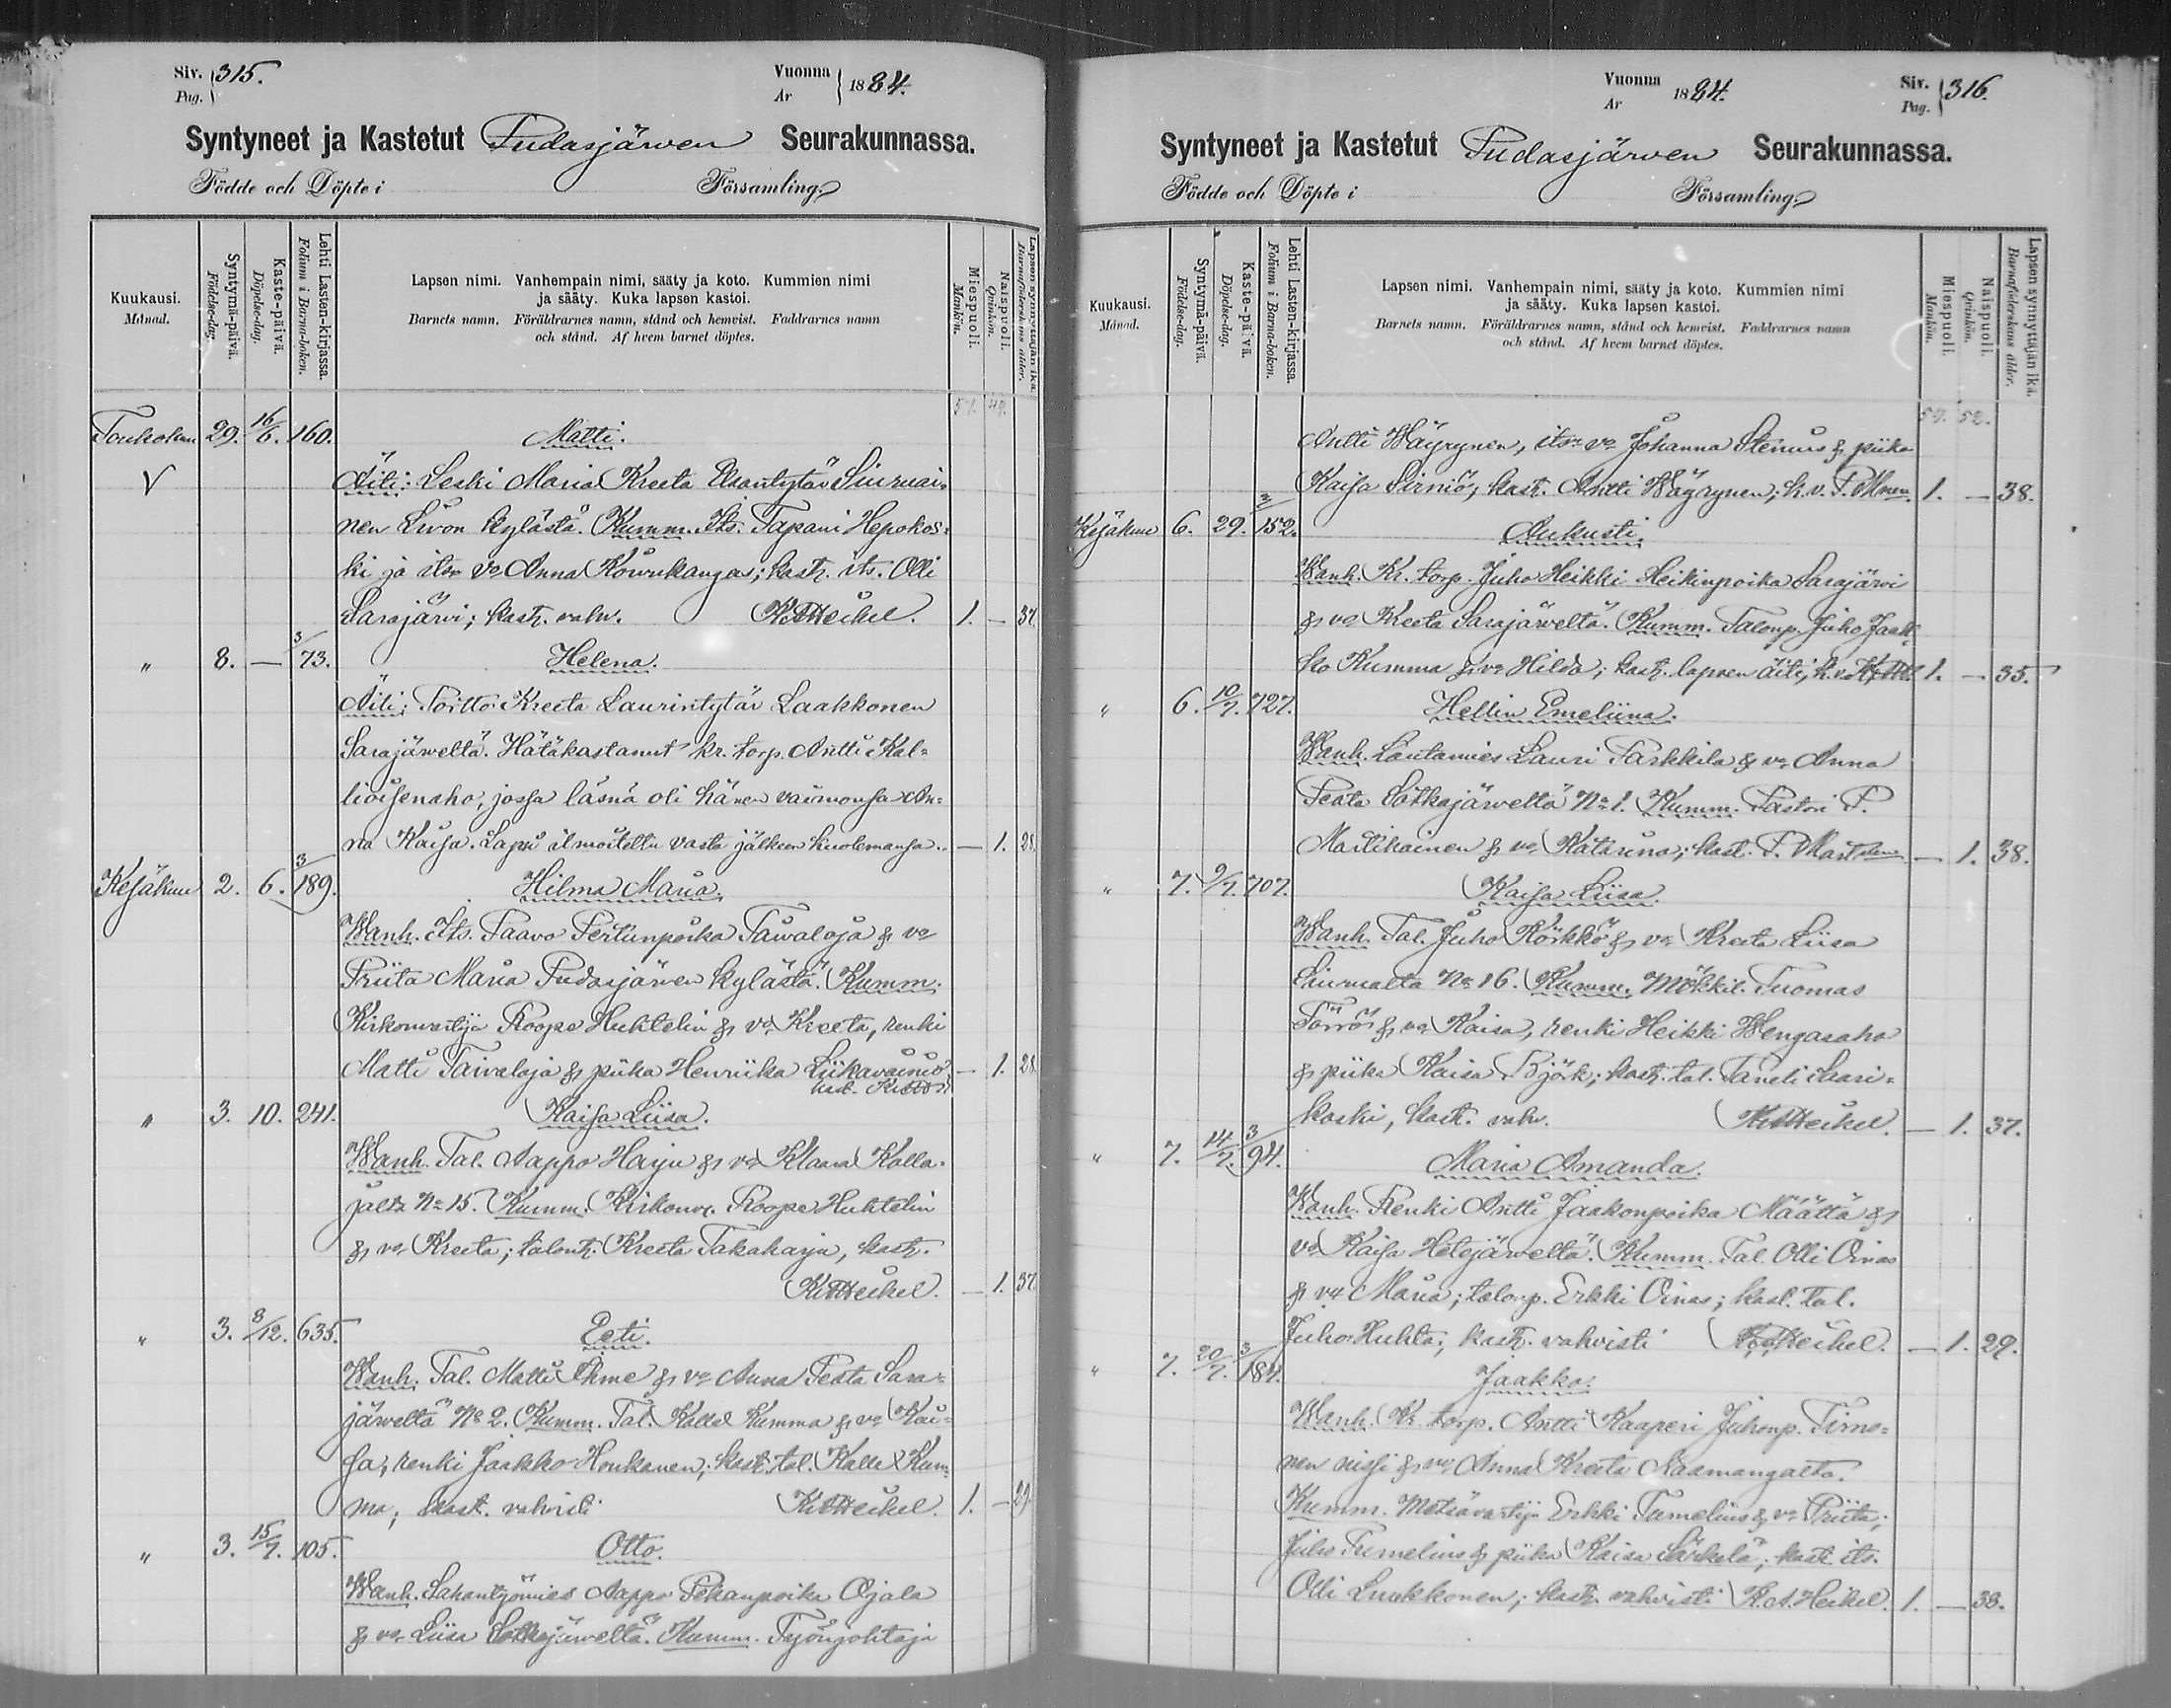 Siv. 315.
Pag.
Vuonna 1884.
Ar
Syntyneet ja Kastetut Pudasjärven Seurakunnassa.
Födde och Döpte i Församling.
Kuukausi.
Månad.
Syntymä-päivä.
Födelse-dag.
Kaste-päivä.
Döpelse-dag.
Lehti Lasten-kirjassa.
Folium i Barna-boken.
Lapsen nimi. Vanhempain nimi, sääty ja koto. Kummien nimi
ja sääty. Kuka lapsen kastoi.
Barnets namn. Föräldrarnes namn, stånd och hemvist. Faddrarnes namn
och stånd. Af hvem barnet döptes.
Miespuoli.
Mankön.
Naispuoli.
Qvinkön.
Lapsen synnyttäjän ikä.
Barnaföderskans ålder.
51. 49.
Toukokuu 29. 16/6. 160. Matti.
V Äiti: Leski Maria Kreeta Esantytär Siuruai-
nen Livon kylästä. Kumm. Its. Tapani Hepokos-
ki ja its:n vo Anna Kouvukangas; kast. its. Olli
Sarajärvi; kast. vahv. K.A.Heikel. 1. — 37.
" 8. — 3/73. Helena.
Äiti: Portto Kreeta Laurintytär Laakkonen
Sarajärveltä. Hätäkastanut kr. torp. Antti Kal-
lioisenaho, jossa läsnä oli hänen vaimonsa An-
na Kaisa. Lapsi ilmoitettu vasta jälkeen kuolemansa. — 1. 28.
Kesäkuu 2. 6. 3/189. Hilma Maria.
Wanh. Its. Paavo Pertunpoika Taivaloja & vo
Priita Maria Pudasjärven kylästä. Kumm.
Kirkonvartija Roope Huhtelin & vo Kreeta, renki
Matti Taivaloja & piika Henriika Liikavainio — 1. 28.
" 3. 10. 241. Kaisa Liisa.
Wanh. Tal. Aappo Harju & vo Klaara Kolla-
jalta No 15. Kumm. Kirkonv. Roope Huhtelin
& vo Kreeta; talont. Kreeta Takaharju, kast.
K.A.Heikel. — 1. 37.
" 3. 8/12. 635. Eeti.
Wanh. Tal. Matti Ihme & vo Anna Peata Sara-
järveltä No 2. Kumm. Tal. Kalle Kumma & vo Kai-
sa, renki Jaakko Honkanen; kast. tal. Kalle Kum-
ma; kast. vahvisti K.A.Heikel. 1. — 29.
" 3. 15/7. 105. Otto.
Wanh. Sahantyömies Aappo Pekanpoika Ojala
& vo Liisa Sotkajärveltä. Kumm. Työnjohtaja
Vuonna 1884.
Ar
Siv. 316.
Pag.
Syntyneet ja Kastetut Pudasjärven Seurakunnassa.
Födde och Döpte i Församling.
Kuukausi.
Månad.
Syntymä-päivä.
Födelse-dag.
Kaste-päivä.
Döpelse-dag.
Lehti Lasten-kirjassa.
Folium i Barna-boken.
Lapsen nimi. Vanhempain nimi, sääty ja koto. Kummien nimi
ja sääty. Kuka lapsen kastoi.
Barnets namn. Föräldrarnes namn, stånd och hemvist. Faddrarnes namn
och stånd. Af hvem barnet döptes.
Miespuoli.
Mankön.
Naispuoli.
Qvinkön.
Lapsen synnyttäjän ikä.
Barnaföderskans ålder.
52.
Antti Wäyrynen, its:n vo Johanna Stenius & piika
Kaisa Sirniö; kast. Antti Wäyrynen; k.v. P. 1. — 38.
Kesäkuu 6. 29. 3/152. Aukusti.
Wanh. Kr. torp. Juho Heikki Heikinpoika Sarajärvi
& vo Kreeta Sarajärveltä. Kumm. Talonp. Juho Jaak-
ko Kumma & vo Hilda; kast. lapsen äiti, k.v. 1. — 35.
" 6. 10/7. 727. Hellin Emeliina.
Wanh. Lautamies Lauri Parkkila & vo Anna
Peata Sotkajärveltä No 1. Kumm. Pastori P.
Martikainen & vo Katariina; kast. P. Mart — 1. 38.
" 7. 9/7. 707. Kaisa Liisa.
Wanh. Tal. Juho Körkkö & vo Kreeta Liisa
Siurualta No 16. Kumm. Mökkil. Tuomas
Törrö & vo Kaisa, renki Heikki Wengasaho
& piika Kaisa Björk; kast. tal. Taneli Saari-
koski, kast. vahv. K.A.Heikel. — 1. 37.
" 7. 14/7. 3/94. Maria Amanda.
Wanh. Renki Antti Jaakonpoika Määttä &
vo Kaisa Hetejärveltä. Kumm. Tal. Olli Oinas
& vo Maria; talonp. Erkki Oinas; kast. tal.
Juho Huhta; kast. vahvisti K.A.Heikel. — 1. 29.
" 7. 20/7. 3/184. Jaakko.
Wanh. Kr. torp. Antti Kaaperi Juhonp. Timo-
nen & vo Anna Kreeta Naamangalta.
Kumm. Metsävartija Erkki Tumelius & vo Priita;
Juho Tumelius & piika Kaisa Särkelä; kast. its.
Olli Luukkonen; kast. vahvisti K.A.Heikel. 1. — 38.